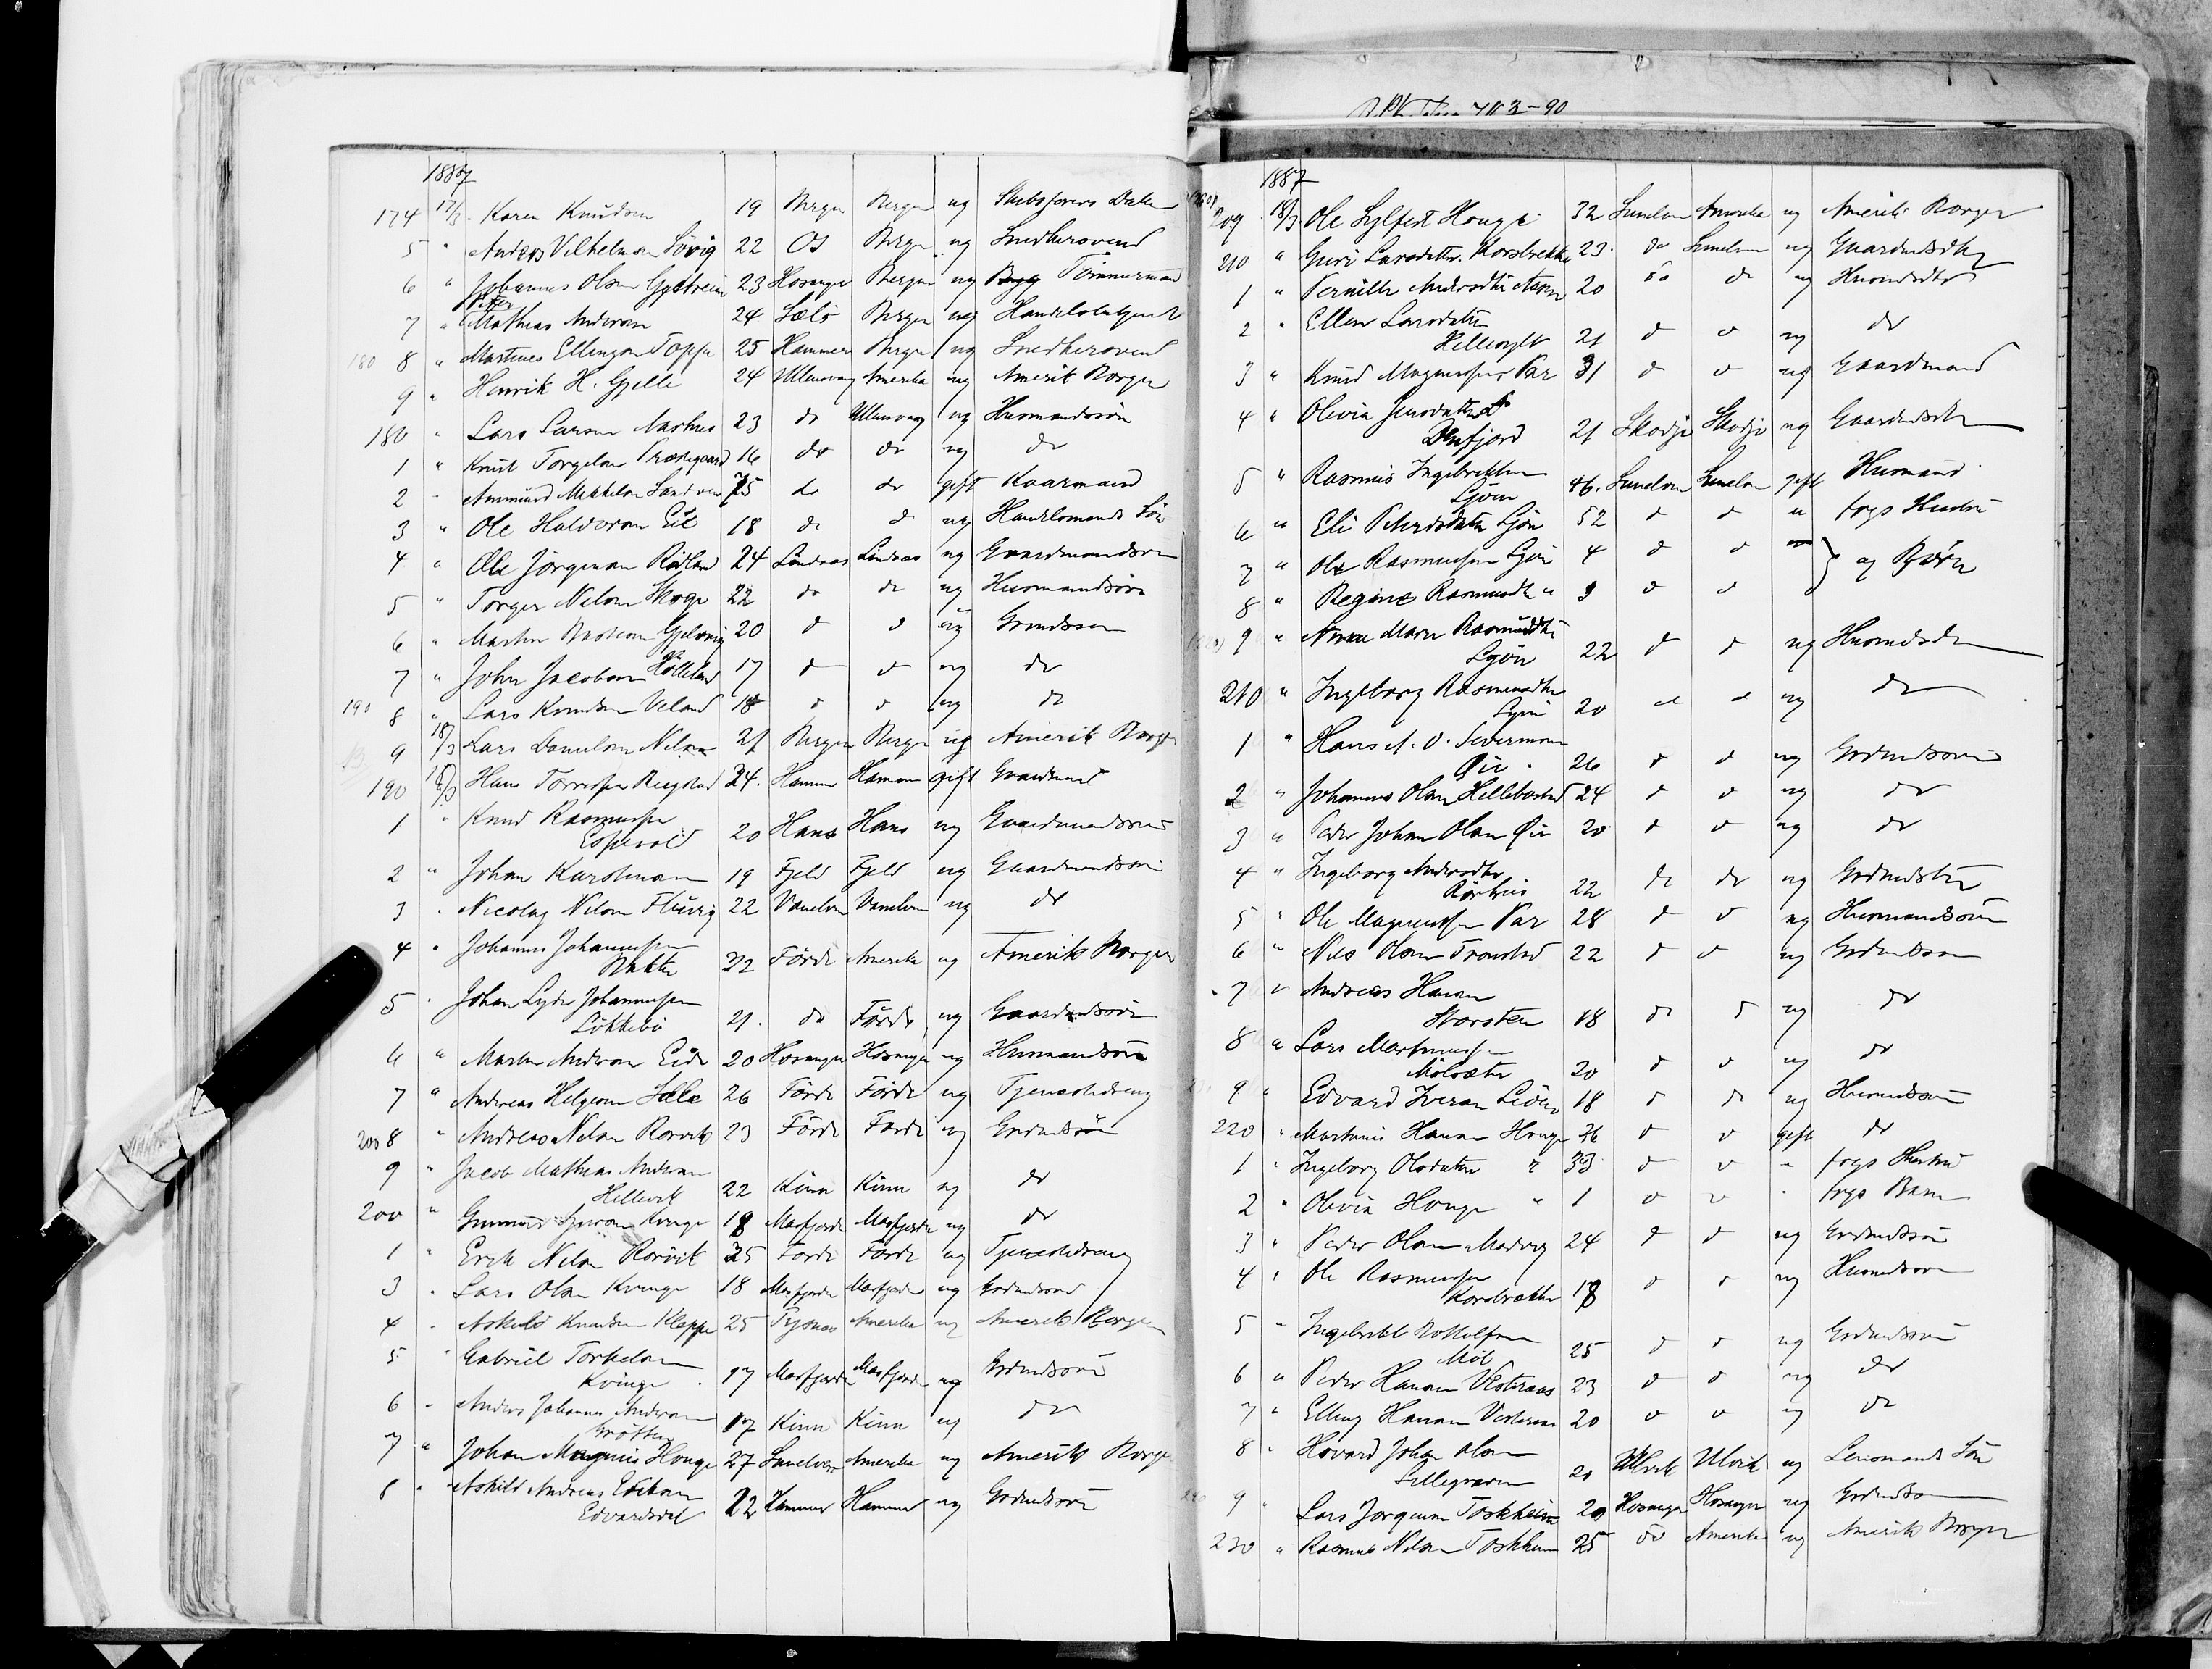 1887
174 17/3 Karen Knudsen 19 Bergen Bergen ug Skibsførers Datter
5 " Anders Vilhelmsen Søvig 22 Os Bergen ug Snedkersvend
6 " Johannes Olsen 23 Hosanger Bergen ug Tømmermand
7 " Peter Mathias Andersen 24 Bergen ug Handelsbetjent
180 8 " Martinus Ellingsen Toppe 25 Hammer Bergen ug Snedkersvend
9 " Henrik H. Gjelle 24 Ullensvang Amerika ug Amerik Borger
180 " Lars Larsen Aashus 23 do Ullensvang ug Husmandssøn
1 " Knut Torgelsen Præstegaard 16 do do ug do
2 " Ammund Mikkelsen Sandven 75 do do gift Kaarmand
3 " Ole Haldorsen Eie 18 do d ug Handelsmands Søn
4 " Ole Jørgensen Risland 24 Lindaas Lindaas ug Gaardmandssøn
5 " Torger Nelsen Skoge 22 do do ug Husmandssøn
6 " Martin Gjelsvig 20 d d ug
7 " John Jacobsen Hølleland 17 d d ug do
190 8 " Lars Knudsen Veland 18 d d ug do
9 18/3 Lars Danielsen Nilsen 21 Bergen Bergen ug Amerik Borger
190 18/3 Hans 24 Hammer Hammer gift Gaardmand
1 " Knud Rasmussen
Espevold 20 Haus Haus ug Gaardmandssøn
2 " Johan Karstensen 19 Fjeld Fjeld ug Gaardmandssøn
3 " Nicolay Nilsen Flusvig 22 Vanelven Vanelven ug do
4 " Johannes Johannessen
32 Førde Amerika ug Amerik Borger
5 " Johan Lyder Johannessen
Løkkebø 21 do Førde ug Gaardmdssøn
6 " Martin Andersen Eide 20 Hosanger Hosanger ug Husmandssøn
7 " Andreas Helgesen Solle 26 Førde Førde ug Tjenestedreng
200 8 " Andreas Nilsen Rørvik 23 Førde Førde ug Grdmdssøn
9 " Jacob Mathias Andersen
Hellevik 22 Kinn Kinn ug do
200 " Gunnar Kvinge 18 Masfjorden Masfjorden ug do
1 " Erik Nilsen Rørvik 25 Førde Førde ug Tjenestedreng
3 " Lars Olsen Kvinge 18 Masfjorden Masfjorden ug Grdmdssøn
4 " Askild Knudsen Kleppe 25 Tysnæs Amerika ug Amerik Borger
5 " Gabriel Torkelsen
Kvinge 17 Masfjorden Masfjorden ug Grdmdssøn
6 " Anders Johannes Andersen
17 Kinn Kinn ug do
7 " Johan Magnus Houge 27 Sunelven Amerika ug Amerik Borger
8 " Askild Andreas Erikson
Edvardsdal 22 Hammer Hammer ug Grdmdssøn
1887
209 18/3 Ole Sylfest Houge 32 Sunelven Amerika ug Amerik Borger
210 " Guri Larsdatter Korsbrekke 23 do Sunelven ug Gaardmdsdtr
1 " Pernille Andersdtr 20 do do ug Husmdsdtr
2 " Ellen Larsdatter
Hellesylt 21 d d ug do
3 " Knud Magnussen Par 31 d d ug Gaardmand
4 " Olivia Jensdatter
21 Skodje Skodje ug Gaardmdsdtr
5 " Rasmus Ingebrektsen
Ljøen 46 Sunelven Sunelven gift Husmand
6 " Eli Petersdatter Ljøen 52 d d " frgs Hustru
7 " Ole Rasmussen Ljøen 4 d d " } og Børn
8 " Regine Rasmusdtr " 3 d d
9 " Anne Marie Rasmusdtr
Ljøen 22 d d ug Husmdsdtr
210 " Ingeborg Rasmusdtr
Ljøen 20 d d ug do
1 " Hans A. O. Severinsen
Øie 26 d d ug Grdmdssøn
2 " Johannes Olsen Hellebostad 24 d d ug do
3 " Peder Johan Olsen Øie 20 d d ug do
4 " Ingeborg Andersdtr
Rørhus 22 do do ug Grdmdsdtr
5 " Ole Magnussen Par 28 d d ug Husmandssøn
6 " Nils Olsen Tronstad 22 d d ug Grdmdssøn
7 " Andreas Hansen
Storsten 18 d d ug do
8 " Lars Martinussen
Molsæter 20 d d ug do
9 " Edvard Iversen 18 d d ug Husmdssøn
220 " Martinus Hansen Houge 36 d d gift do
1 " Ingeborg Olsdatter " 33 d d " frgs Hustru
2 " Olivia Houge " 1 d d " frgs Barn
3 " Peder Olsen Madvig 24 d d ug Grdmdssøn
4 " Ole Rasmussen
Korsbrække 18 d d ug Husmdssøn
5 " Ingebrikt Rollofsen
Møl 25 d d ug Grdmdssøn
6 " Peder Hansen Vesteraas 23 d d ug do
7 " Elling Hansen Vesteraas 20 d d ug do
8 " Havard Johan Olsen
Lillegraven 20 Ulvik Ulvik ug Lensmands Søn
9 " Lars Jørgensen Toskheim 20 Hosanger Hosanger ug Grdmdssøn
230 " Rasmus Nilsen Toskhem 25 do Amerika ug Amerik Borger